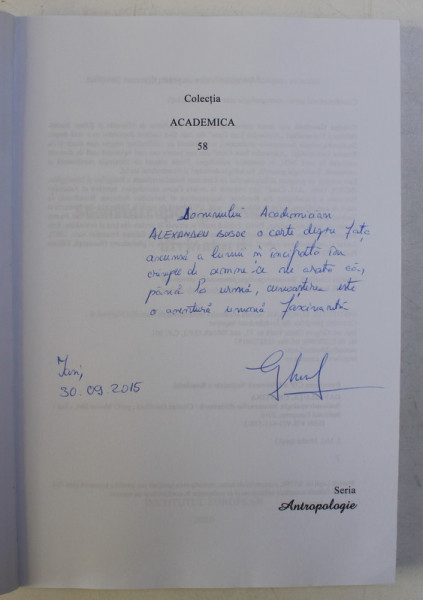 Colecția
ACADEMICA
58
Domnului Academician
ALEXANDRU BOBOC o carte despre fața
ascunsă a lumii
de oameni ce ne arată că,
până la urmă, cunoașterea este
o aventură umană fascinantă
Iași,
30.09.2015
Seria
Antropologie